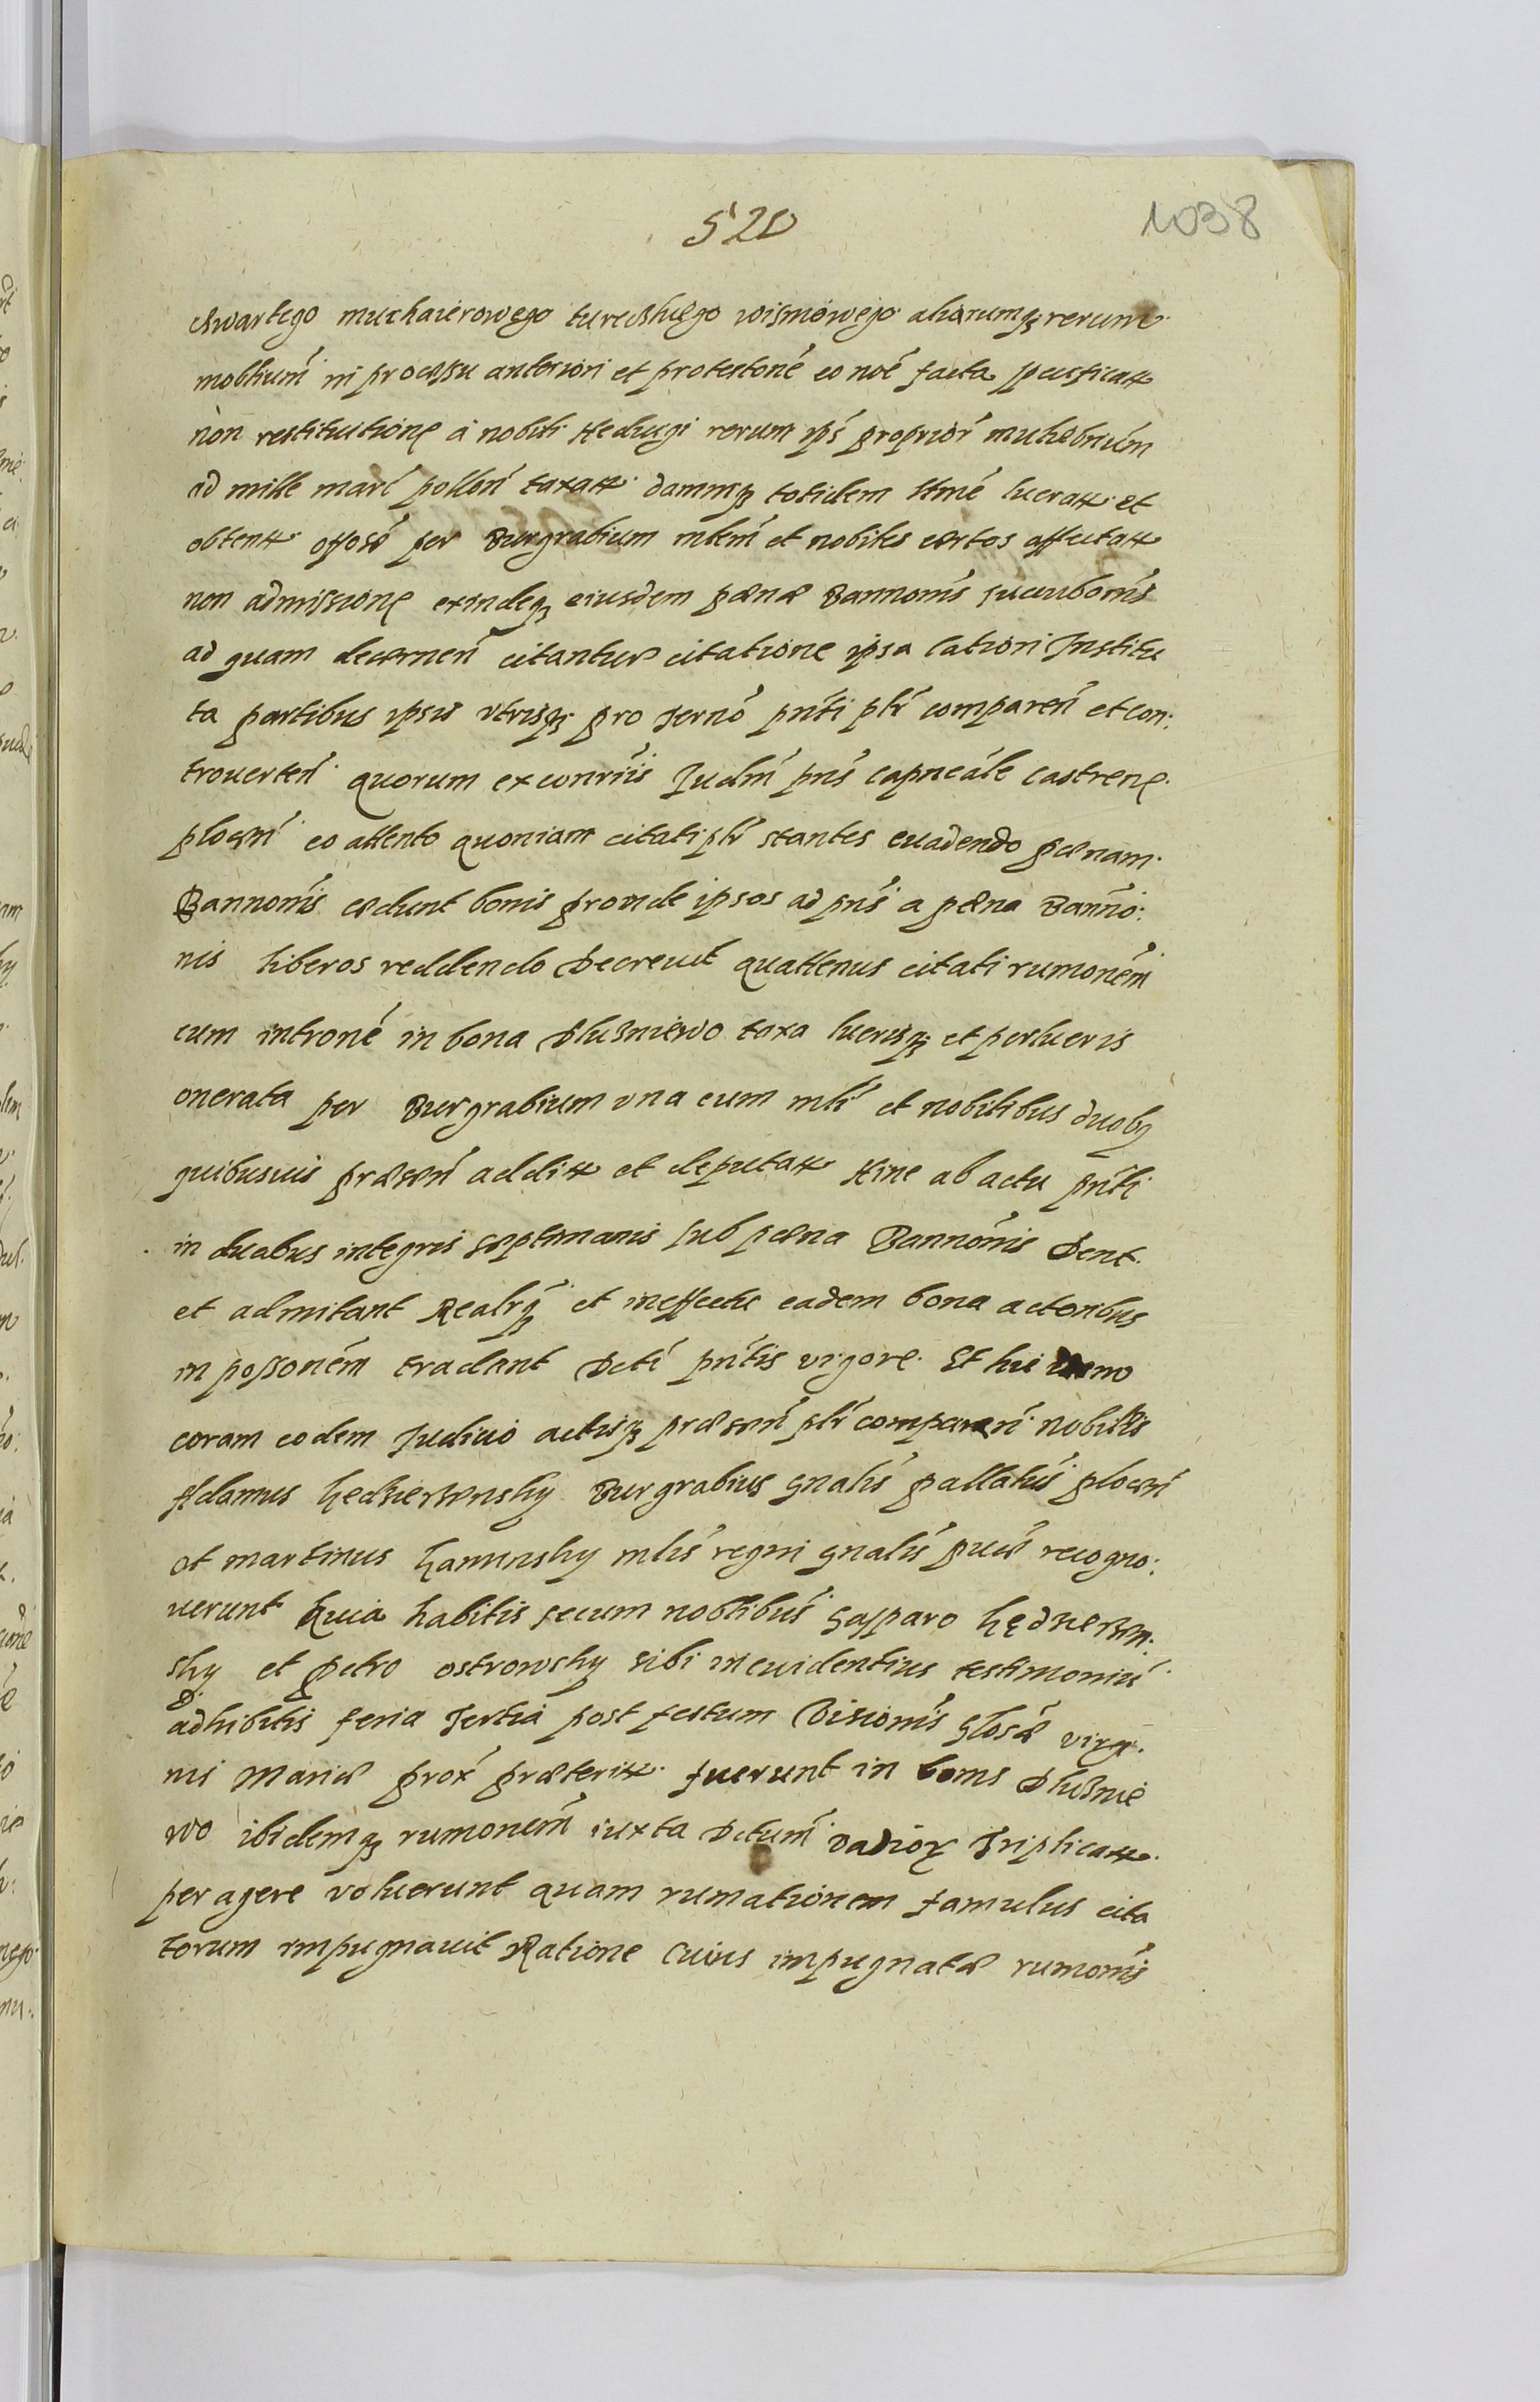 520
1038
czwartego muchaierowego tureczkiego wismowego aliarumq rerum
mobilium in processu anteriori et protestone eo noe facta specificatt
non restitutione a nobili Hedvigi rerum ips proprior muliebrium
ad mille marc pollon taxatt damniq totidem summe lucratt et
obtent offose per Burgrabium mlem et nobiles certos affectatt
non admissione exindeq eiusdem pœnæ Bannonis succubonis
ad quam decernen citantur citatione ipsa latiori Institu
ta partibus ipsis vtrisq pro termo pnti plr comparen et con:
trouerten quorum ex conriis Judm pns capneale castrens
plocen eo attento quoniam citati plr stantes euadendo pœnam
Bannonis cedunt bonis proinde ipsos ad pns a pœna Banno:
nis liberos reddendo Decreuit quattenus citati rumonem
cum introne in bona Dluzniewo taxa lucrisq et perlucris
onerata per Burgrabium vna cum mlr et nobilibus duobq
quibusuis præsen additt et deputatt Hinc ab actu pnti
in duabus integris septimanis sub pœna Bannonis Dent
et admitant Realrq et in effectu eadem bona actoribus
in possonem tradant Dcti pntis vigore Et hic
coram eodem Judicio actisq præsen plr comparen nobiles
Adamus Kedzierzensky Burgrabius gnalis pallatus plocen
et martinus Kaminsky mlis regni gnalis recogno:
uerunt Quia habitis secum nobilibus Gasparo Kędzierzen
sky et Petro ostrowsky sibi in euidentius testimonium
adhibitis feria Tertia post festum Visionis Glosæ virgi
nis Mariæ prox præterit fuerunt in bonis Dluznie
wo ibidemq rumonem iuxta Dctum vadior Triplicatt
per agere voluerunt quam rumationem famulus cita
torum impugnauit Ratione Cuius impugnatæ rumonis